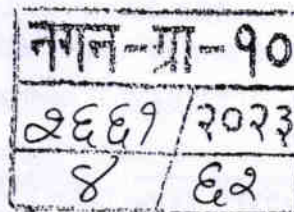 नगन-ग्रा-१०
२६६१/२०२३
४/६२